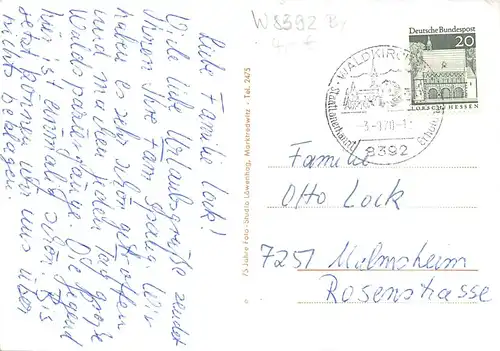 Liebe Familie Lock!
Viele liebe Urlaubsgrüße sendet
Ihnen Ihre Fam. Wir
haben es sehr schön getroffen
und machen jeden Tag große
Waldspaziergänge. Die Gegend
hier ist einmalig schön. Bis
jetzt können wir uns über
nichts beklagen.
75 Jahre Foto-Studio Löwenhag, Marktredwitz · Tel. 2475
W 8392
Deutsche Bundespost
20
LORSCH/HESSEN
WALDKIRCHEN
8392
Familie
Otto Lock
7251 Malmsheim
Rosenstrasse